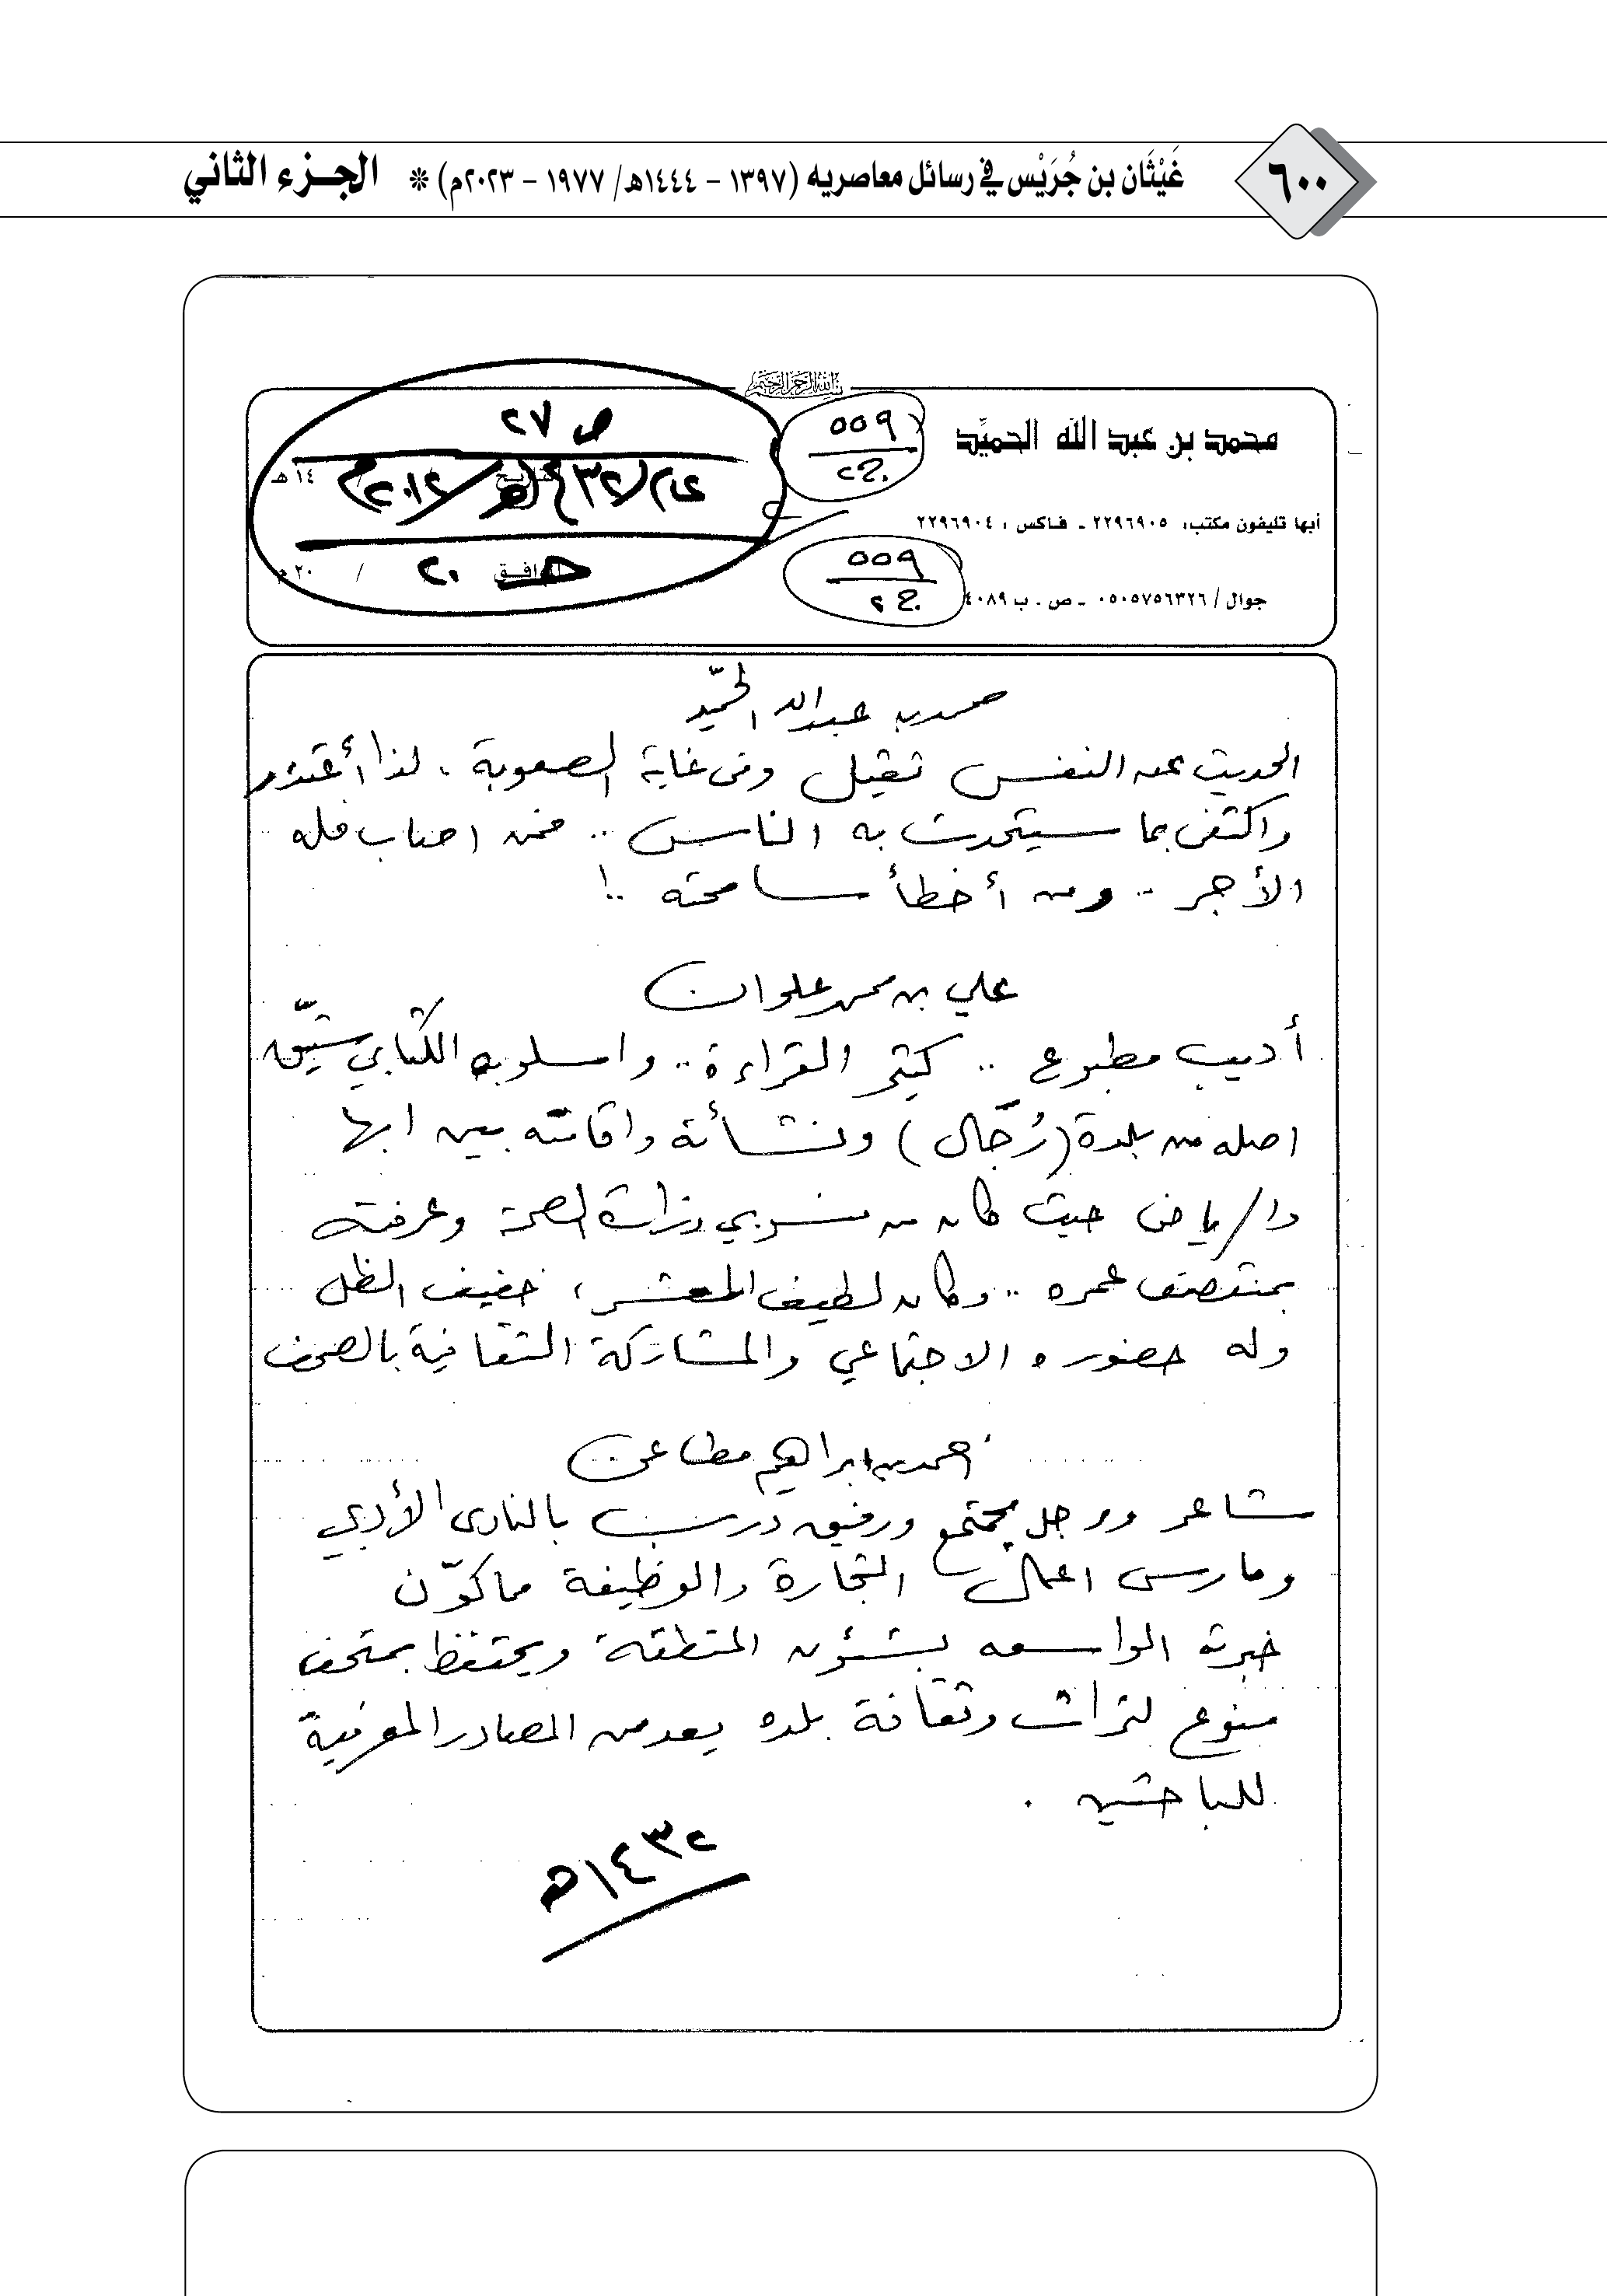 ٦٠٠
غَيْثَان بن جُرَيْس في رسائل معاصريه (١٣٩٧ - ١٤٤٤هـ/ ١٩٧٧ - ٢٠٢٣م) * الجـزء الثاني
بسم الله الرحمن الرحيم
محمد بن عبد الله الحميِّد
أبها تليفون مكتب: ٢٢٩٦٩٠٥ ـ فـاكس : ٢٢٩٦٩٠٤
جوال / ٠٥٠٥٧٥٦٣٢٦ ـ ص . ب ٤٠٨٩
٥٥٩
ج٢
٥٥٩
ج٢
ص ٢٧
١٤٣٢هـ/٢٠١٢م
١٤هـ
الموافق / ٢٠م
محمد بن عبدالله الحميّد
الحديث عن النفس ثقيل وفى غاية الصعوبة . لذا أعتذر
واكتفى بما سيتحدث به الناس .. فمن اصاب فله
الأجر .. ومن أخطأ سامحته ..!
علي بن محمد علوان
أديب مطبوع .. كثير القراءة .. واسلوبه الكتابي شيّق
اصله من بلدة (رُجّال) ونشأته واقامته بين ابها
والرياض حيث كان من منسوبي وزارة الصحة وعرفته
بمنتصف عمره .. وكان لطيف المعشر ، خفيف الظل
وله حضوره الاجتماعي والمشاركة الثقافية بالصحف
احمد بن ابراهيم مطاعن
شاعر ورجل مجتمع ورفيق درب بالنادى الأدبي
ومارس اعمال التجارة والوظيفة مما كوّن
خبرته الواسعه بشئون المنطقة ويحتفظ بمتحف
منوع لتراث وثقافة بلده يعد من المصادر المعرفية
للباحثين .
١٤٣٢هـ